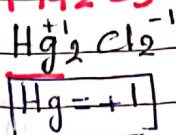 Hg₂⁺¹ Cl₂⁻¹
Hg = +1